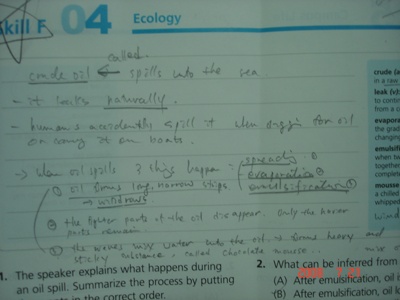 Skill F 04 Ecology
called.
crude oil ← spills into the sea
- it leaks naturally.
- humans accidently spill it when digging for oil
or carrying it on boats.
→ when oil spills 3 things happen:
spreading ①
evaporation ②
emulsification ③
① oil forms long, narrow strips
→ windrows
② the lighter parts of the oil disappear. Only the heavier
parts remain
③ the waves mix water into the oil → forms heavy and
sticky substance, called chocolate mousse...
crude (a
in a raw
leak (v):
to contin
from a c
evapora
the grad
changing
emulsifi
when tw
together
complete
mousse
a chilled
whipped
wind
1. The speaker explains what happens during
an oil spill. Summarize the process by putting
in the correct order.
2. What can be inferred from
(A) After emulsification, oil i
(B) After emulsification, oil l